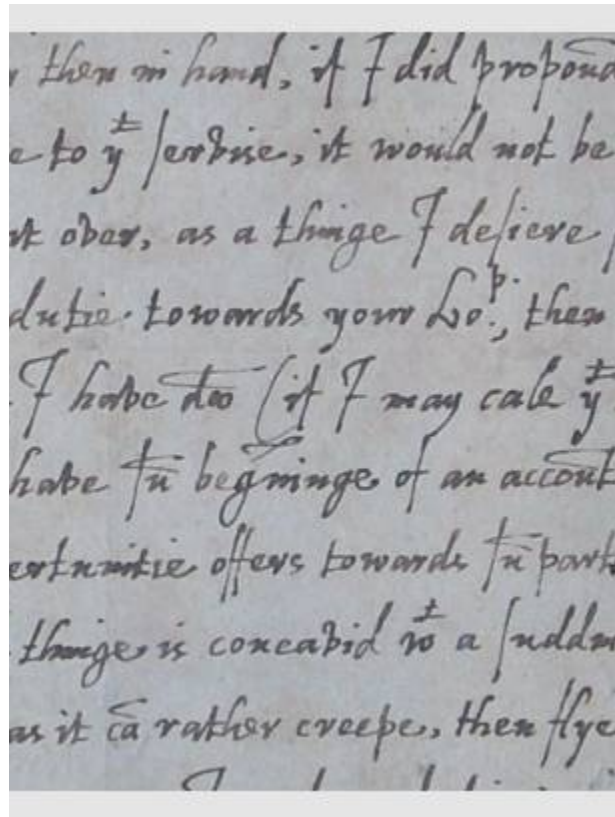 then in hand, if I did propound
e to yt servise, it would not be
ver, as a thinge I desiere
dutie towards your Lop., then
I have doo (if I may cale yt
have beginninge of an account
ertunitie offers towards part
thinge is conceavid wt a sudd
as it cā rather creepe, then flye